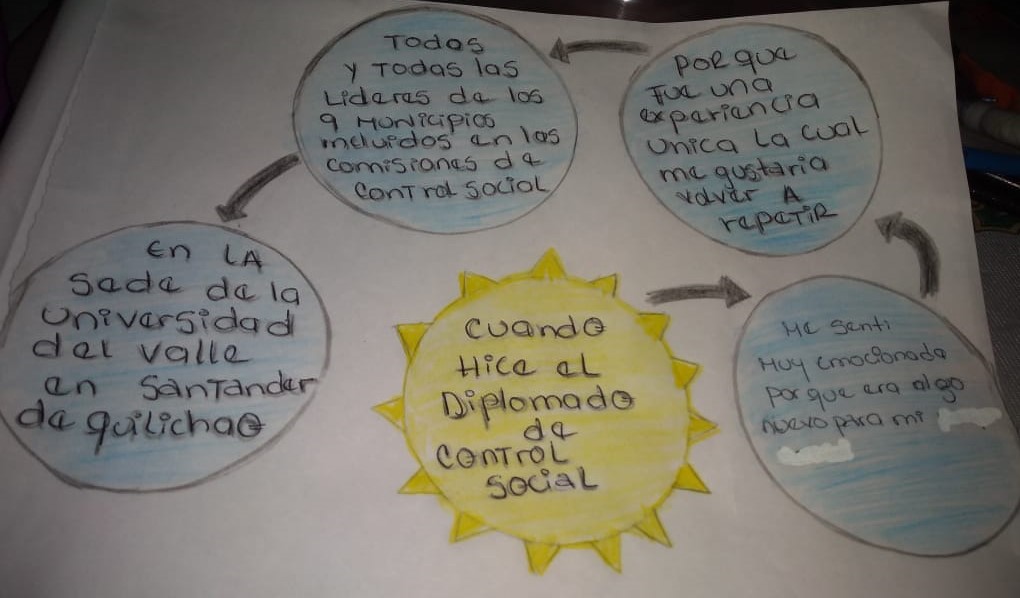 CUANDO
HICE EL
DIPLOMADO
de
CONTROL
SOCIAL
ME SENTI
MUY emocionada
Por que era algo
Nuevo para mi
POR que
FUE UNA
experiencia
UNICA LA cual
me gustaria
volver A
repetir
Todos
y Todas las
Lideres de los
9 Municipios
incluidos en las
comisiones de
Control social
En LA
Sede de la
Universidad
del valle
en Santander
de quilichao